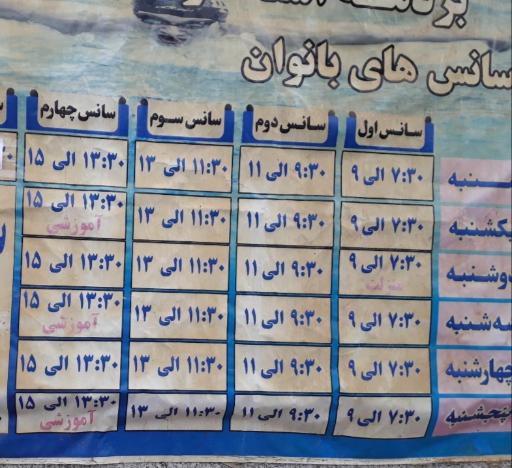 سانس های بانوان
سانس اول سانس دوم سانس سوم سانس چهارم
۷:۳۰ الی ۹ ۹:۳۰ الی ۱۱ ۱۱:۳۰ الی ۱۳ ۱۳:۳۰ الی ۱۵
یکشنبه ۷:۳۰ الی ۹ ۹:۳۰ الی ۱۱ ۱۱:۳۰ الی ۱۳ ۱۳:۳۰ الی ۱۵
آموزشی
دوشنبه ۷:۳۰ الی ۹ ۹:۳۰ الی ۱۱ ۱۱:۳۰ الی ۱۳ ۱۳:۳۰ الی ۱۵
منزلت
سه شنبه ۷:۳۰ الی ۹ ۹:۳۰ الی ۱۱ ۱۱:۳۰ الی ۱۳ ۱۳:۳۰ الی ۱۵
آموزشی
چهارشنبه ۷:۳۰ الی ۹ ۹:۳۰ الی ۱۱ ۱۱:۳۰ الی ۱۳ ۱۳:۳۰ الی ۱۵
پنجشنبه ۷:۳۰ الی ۹ ۹:۳۰ الی ۱۱ ۱۱:۳۰ الی ۱۳ ۱۳:۳۰ الی ۱۵
آموزشی